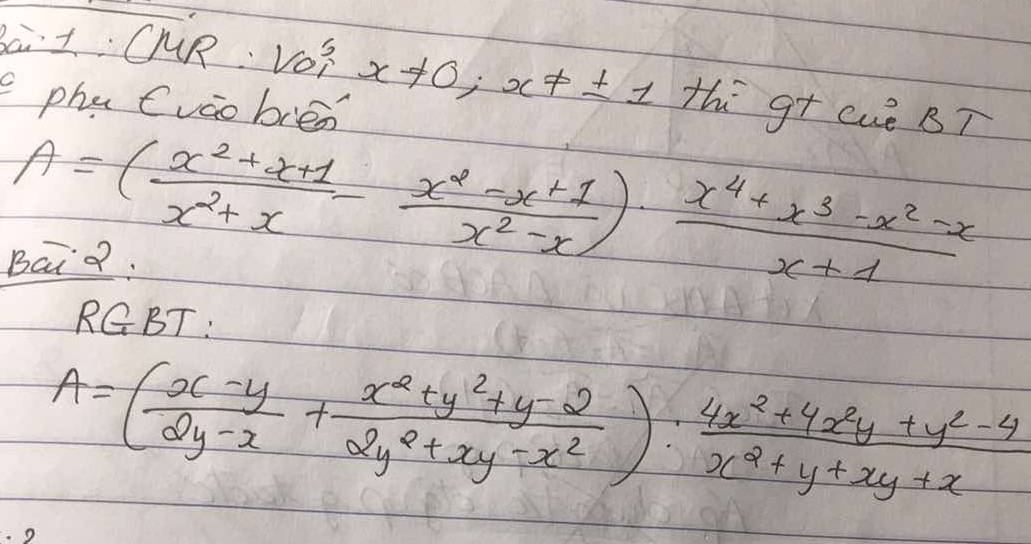 Bài 1 : CMR : Với x ≠ 0 ; x ≠ ± 1 thì gt cuả BT
phụ € vào biến
A = ( (x² + x + 1)/(x² + x) - (x² - x + 1)/(x² - x) ) . (x⁴ + x³ - x² - x)/(x + 1)
Bài 2 :
RGBT :
A = ( (x - y)/(2y - x) + (x² + y² + y - 2)/(2y² + xy - x²) ) : (4x² + 4x²y + y² - 4)/(x² + y + xy + x)